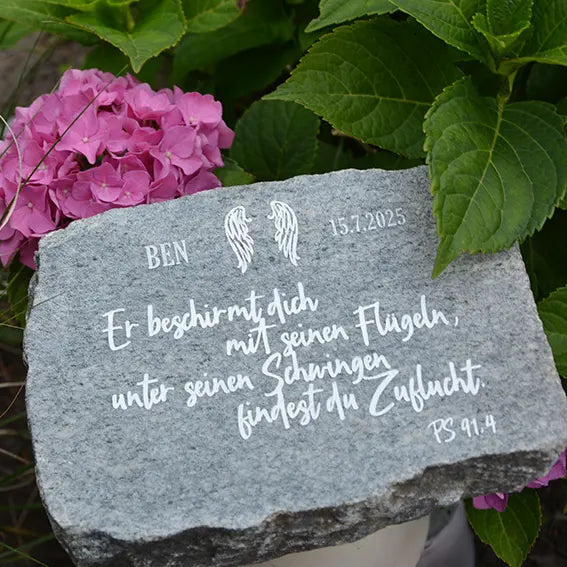 BEN 15.7.2025
Er beschirmt dich
mit seinen Flügeln,
unter seinen Schwingen
findest du Zuflucht.
PS 91,4